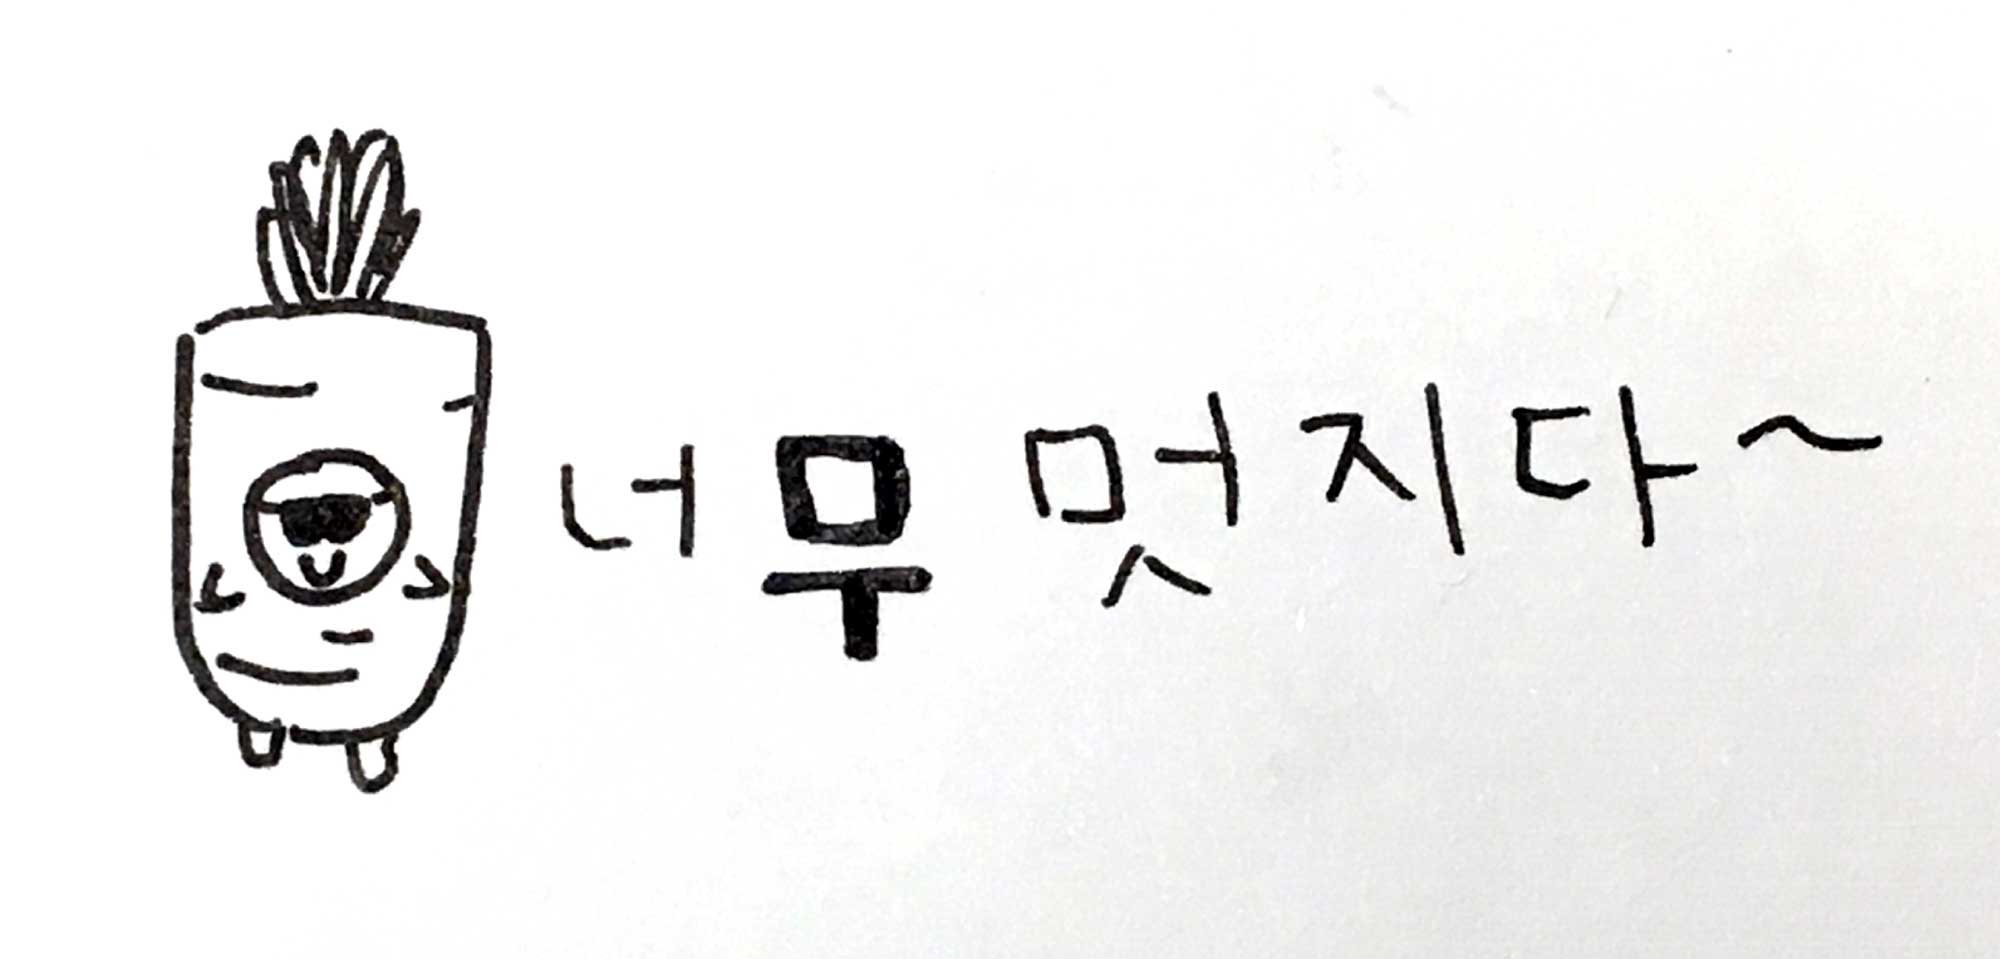 너무 멋지다~